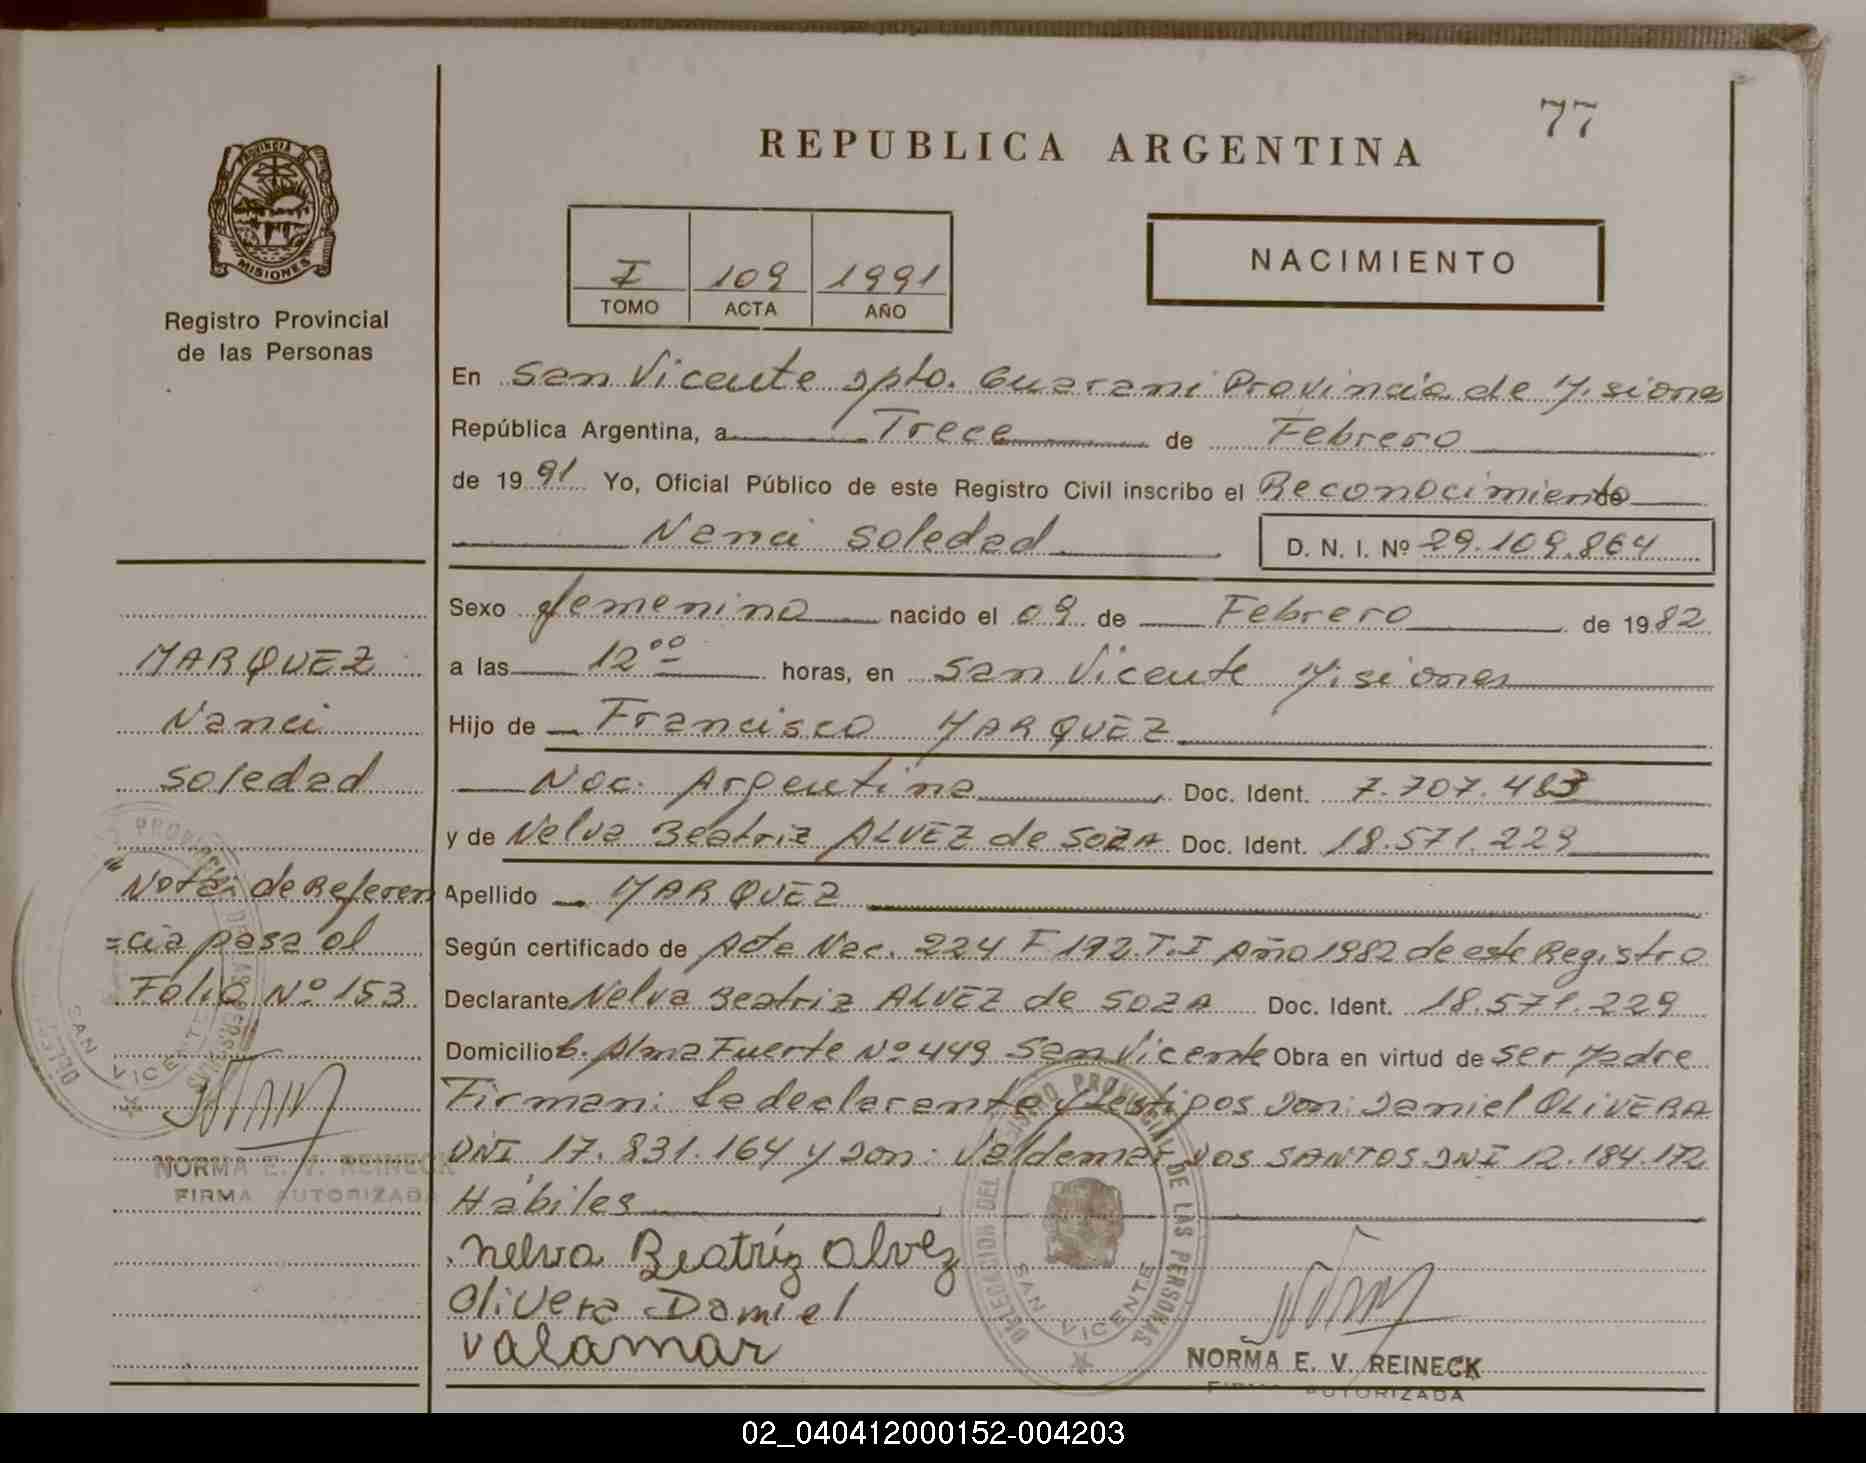 77
REPUBLICA ARGENTINA
PROVINCIA DE
MISIONES
Registro Provincial
de las Personas
I 109 1991
TOMO ACTA AÑO
NACIMIENTO
En San Vicente Dpto. Guarani Provincia de Misiones
República Argentina, a Trece de Febrero
de 1991 Yo, Oficial Público de este Registro Civil inscribo el Reconocimiento de
Nanci Soledad D. N. I. Nº 29.109.864
Sexo femenino nacido el 09 de Febrero de 1982
a las 12⁰⁰ horas, en San Vicente Misiones
Hijo de Francisco MARQUEZ
Nac. Argentina Doc. Ident. 7.707.483
y de Nelva Beatriz ALVEZ de SOZA Doc. Ident. 18.571.229
Apellido MARQUEZ
Según certificado de Acta Nac. 224 F 192.T.I Año 1982 de este Registro
Declarante Nelva Beatriz ALVEZ de SOZA Doc. Ident. 18.571.229
Domicilio Alma Fuerte Nº 449 San Vicente Obra en virtud de ser Madre
Firman: La declarante y testigos Don: Daniel OLIVERA
DNI 17.831.164 y Don: Valdemar DOS SANTOS DNI 12.184.172
Hábiles
Nelva Beatríz Alvez
Olivera Daniel
Valamar
DELEGACION DEL REGISTRO PROVINCIAL DE LAS PERSONAS
SAN VICENTE
NORMA E. V. REINECK
FIRMA AUTORIZADA
MARQUEZ
Nanci
Soledad
"Nota: de Referen
=cia pasa al
Folio Nº 153
SAN VICENTE
NORMA E. V. REINECK
FIRMA AUTORIZADA
02_040412000152-004203